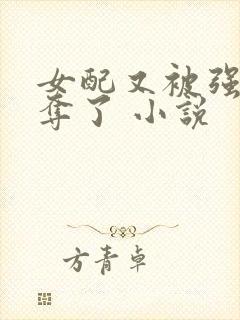 女配又被强
夺了 小説
方青卓